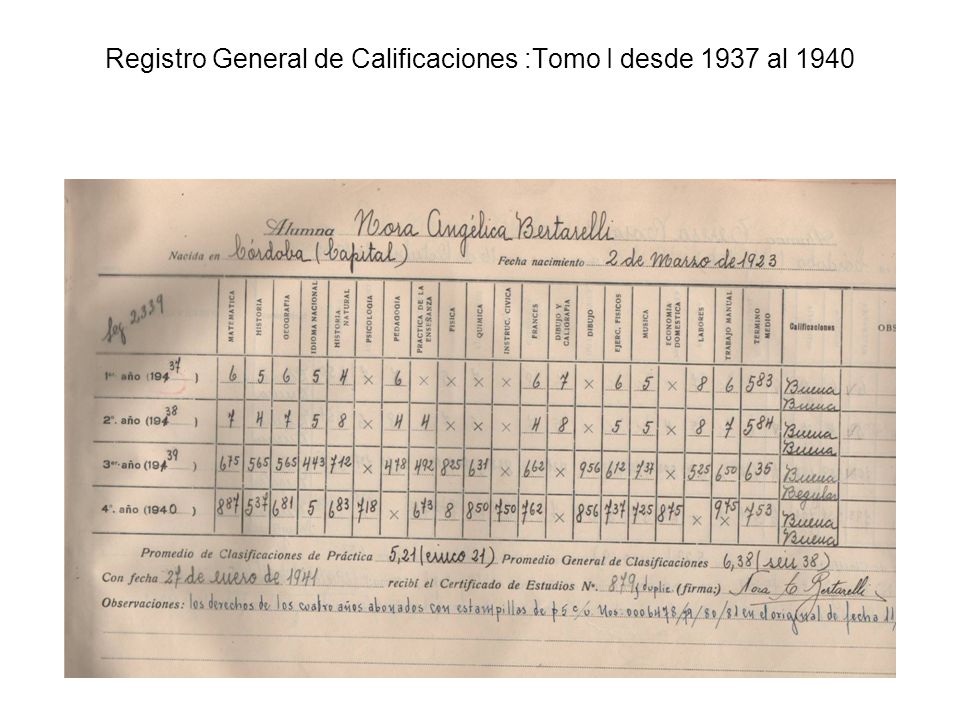 Registro General de Calificaciones :Tomo I desde 1937 al 1940
Alumna Nora Angélica Bertarelli
Nacida en Córdoba (Capital) Fecha nacimiento 2 de Marzo de 1923
Leg 2,339
MATEMATICA HISTORIA GEOGRAFIA IDIOMA NACIONAL HISTORIA NATURAL PSICOLOGIA PEDAGOGIA PRACTICA DE LA ENSEÑANZA FISICA QUIMICA INSTRUC. CIVICA FRANCES DIBUJO Y CALIGRAFIA DIBUJO EJERC. FISICOS MUSICA ECONOMIA DOMESTICA LABORES TRABAJO MANUAL TERMINO MEDIO Calificaciones OBS
1er. año (194 37 ) 6 5 6 5 4 x 6 x x x x 6 7 x 6 5 x 8 6 583 Buena Buena
2º. año (194 38 ) 7 4 7 5 8 x 4 4 x x x 4 8 x 5 5 x 8 7 584 Buena Buena
3er. año (194 39 ) 675 565 565 443 712 x 478 492 825 631 x 662 x 956 612 737 x 525 650 635 Buena Regular
4º. año (1940 ) 887 537 681 5 683 718 x 673 8 850 750 762 x 856 737 725 875 x 975 x 753 Buena Buena
Promedio de Clasificaciones de Práctica 5,21 (cinco 21) Promedio General de Clasificaciones 6,38 (seis 38)
Con fecha 27 de enero de 1941 recibí el Certificado de Estudios Nº. 879 duplic. (firma:) Nora A Bertarelli
Observaciones: los derechos de los cuatro años abonados con estampillas de $5 c/u. Nos. 0006478/79/80/81 en el original de fecha 11/